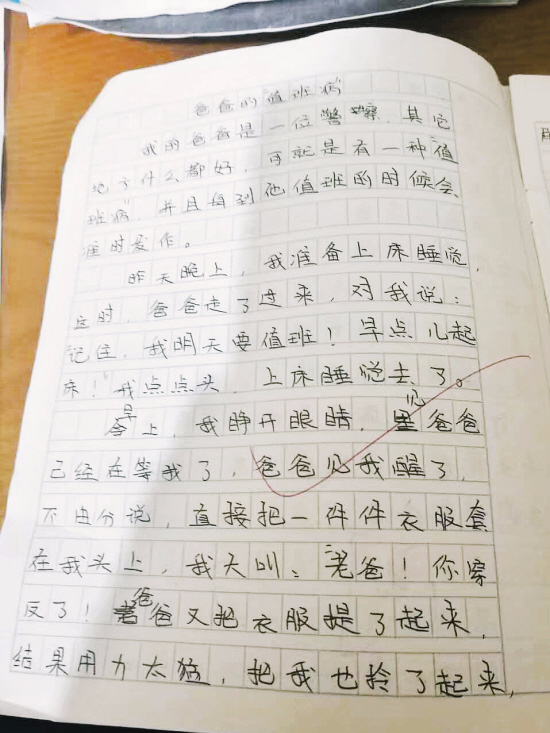 爸爸的"值班病"
我的爸爸是一位警察,其它
地方什么都好,可就是有一种"值
班病",并且每到他值班的时候会
准时发作。
昨天晚上,我准备上床睡觉,
这时,爸爸走了过来,对我说:
记住,我明天要值班!早点儿起
床!我点点头,上床睡觉去了。
早上,我睁开眼睛,见爸爸
已经在等我了,爸爸见我醒了,
不由分说,直接把一件件衣服套
在我头上,我大叫:"老爸!你穿
反了!爸爸又把衣服提了起来,
结果用力太猛,把我也拎了起来,